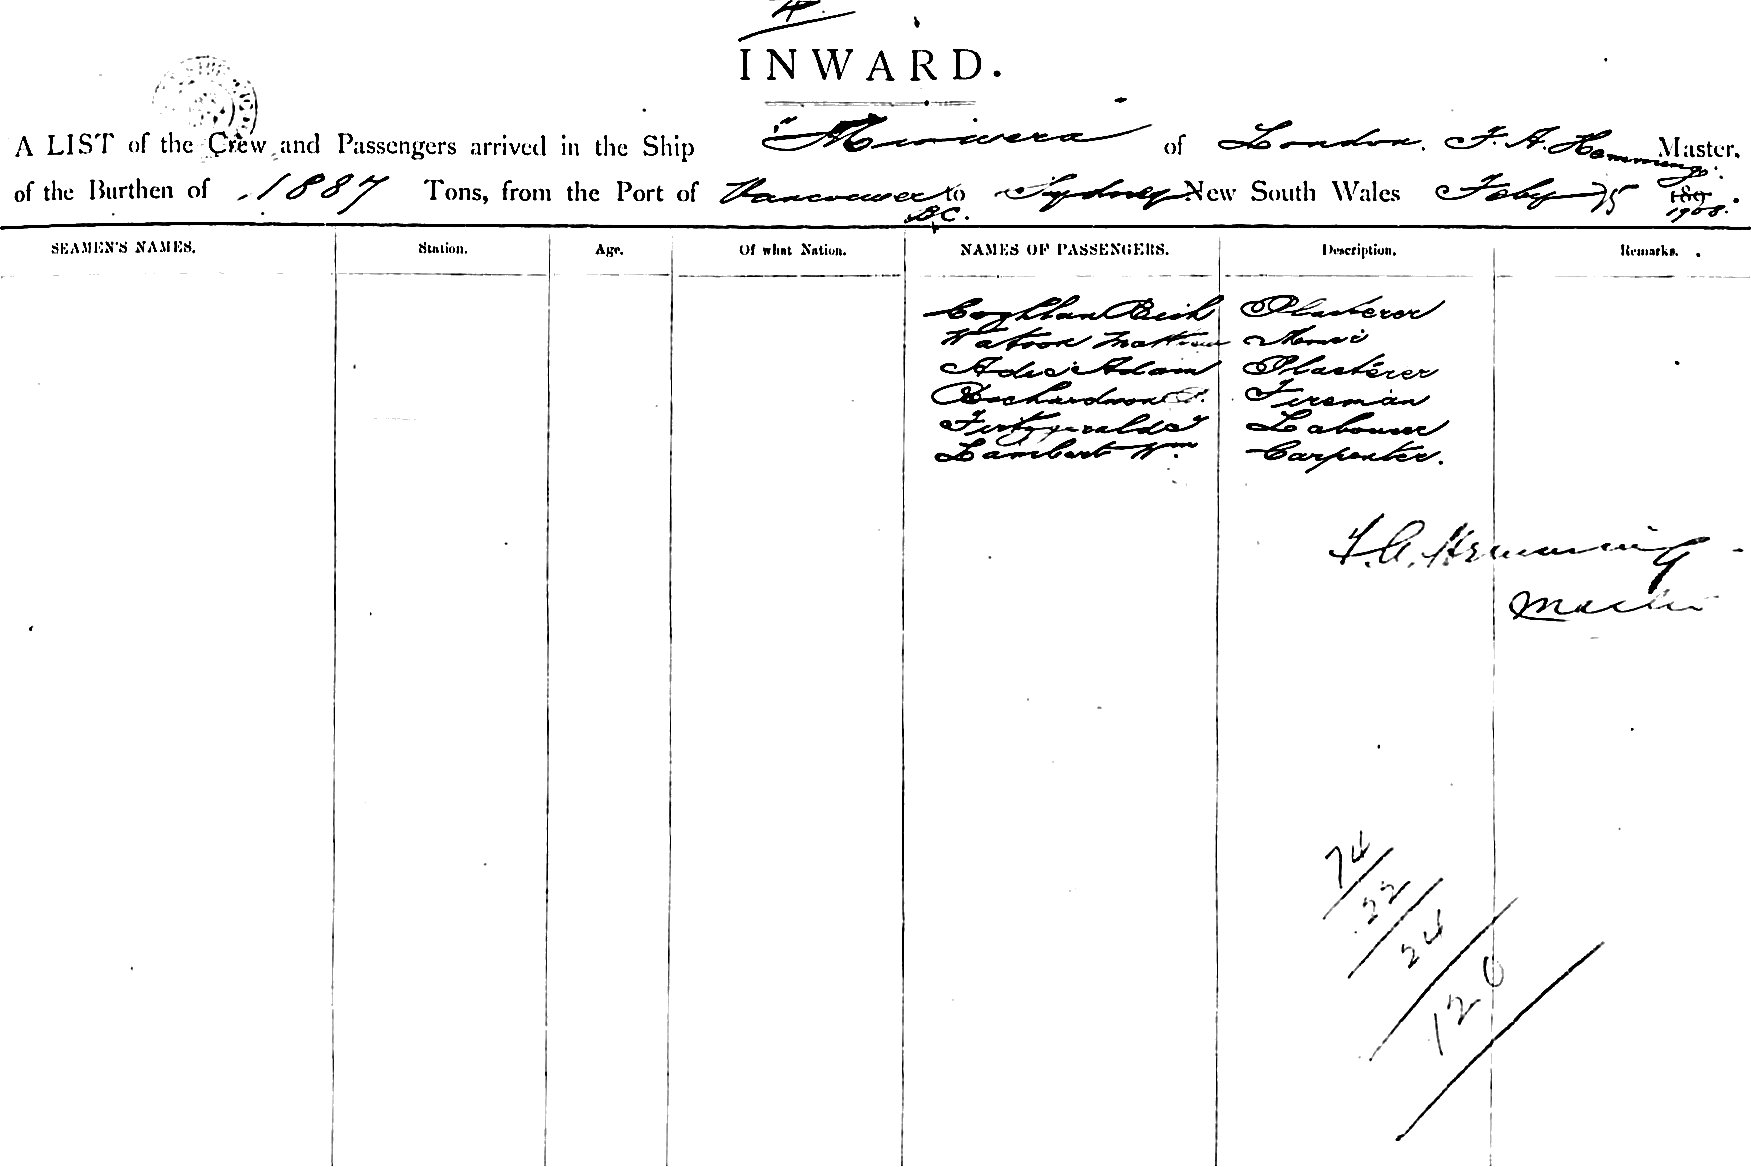 4.
INWARD.
A LIST of the Crew and Passengers arrived in the Ship "Miowera of London. F. A. Hemming Master.
of the Burthen of 1887 Tons, from the Port of Vancouver B.C. to Sydney New South Wales Feby 15 189 1908.
SEAMEN'S NAMES. Station. Age. Of what Nation. NAMES OF PASSENGERS. Description. Remarks.
Coghlan Plasterer
Watson
Adie Adam Plasterer
Richardson Fireman
Fitzgerald Labourer
Lambert Wm Carpenter.
F. A. Hemming
Master
74
22
24
120